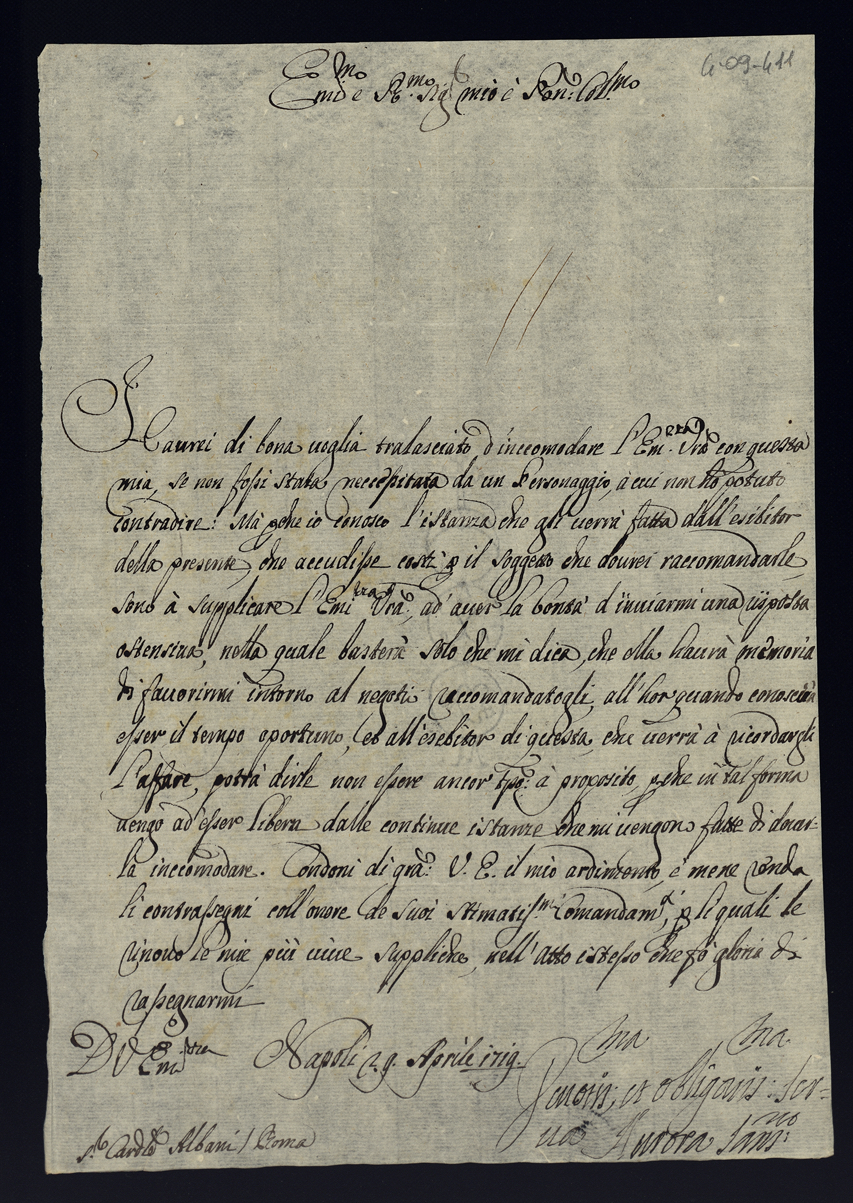 4-09-411
Emo e Rmo Sig mio è Pan: Colmo
Haurei di bona uoglia tralasciato d'inccomodare l'Emza Vra con questa
mia, se non fossi stata neccessitata da un Personaggio, à cui non hò potuto
contradire: Mà pche io conosco l'istanza che gli uerrà fatta dall'esibitor
della presente, che accudisse costì p il soggetto che dourei raccomandarle,
sono à supplicare l'Emiza Vra: ad auer la bontà d'inuiarmi una risposta
ostensiua, nella quale basterà solo che mi dica, che ella haurà memoria
di fauorirmi intorno al negotio raccomandatogli, all'hor quando conoscerà
esser il tempo oportuno, et all'esebitor di questa, che uerrà à ricordargli
l'affare, potrà dirle non essere ancor tpo: à proposito, pche in tal forma
uengo ad'esser libera dalle continue istanze che mi uengono fatte di douer-
la inccomodare. Condoni di gra: V. E. il mio ardimento, e mene renda
li contrassegni coll'onore de suoi stimatissmi Comandamti, p li quali le
rinouo le mie più uiue suppliche, nell'atto istesso che fò gloria di
rassegnarmi
D V Emza Napoli 29 Aprile 1719.
Deuotis:ma, et obligatis:ma Ser-
ua Aurora Sans:no
Sr Cardle Albani / Roma